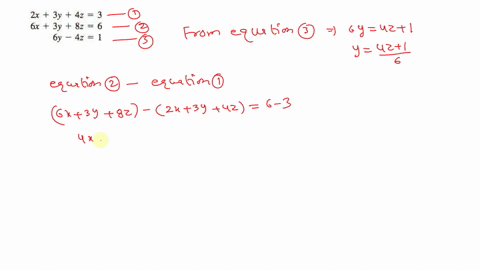 2x + 3y + 4z = 3 —— ①
6x + 3y + 8z = 6 —— ②
6y − 4z = 1 —— ③
From equation ③ ⇒ 6y = 4z+1
y = (4z+1)/6
equation ② − equation ①
(6x+3y+8z) − (2x+3y+4z) = 6−3
4x